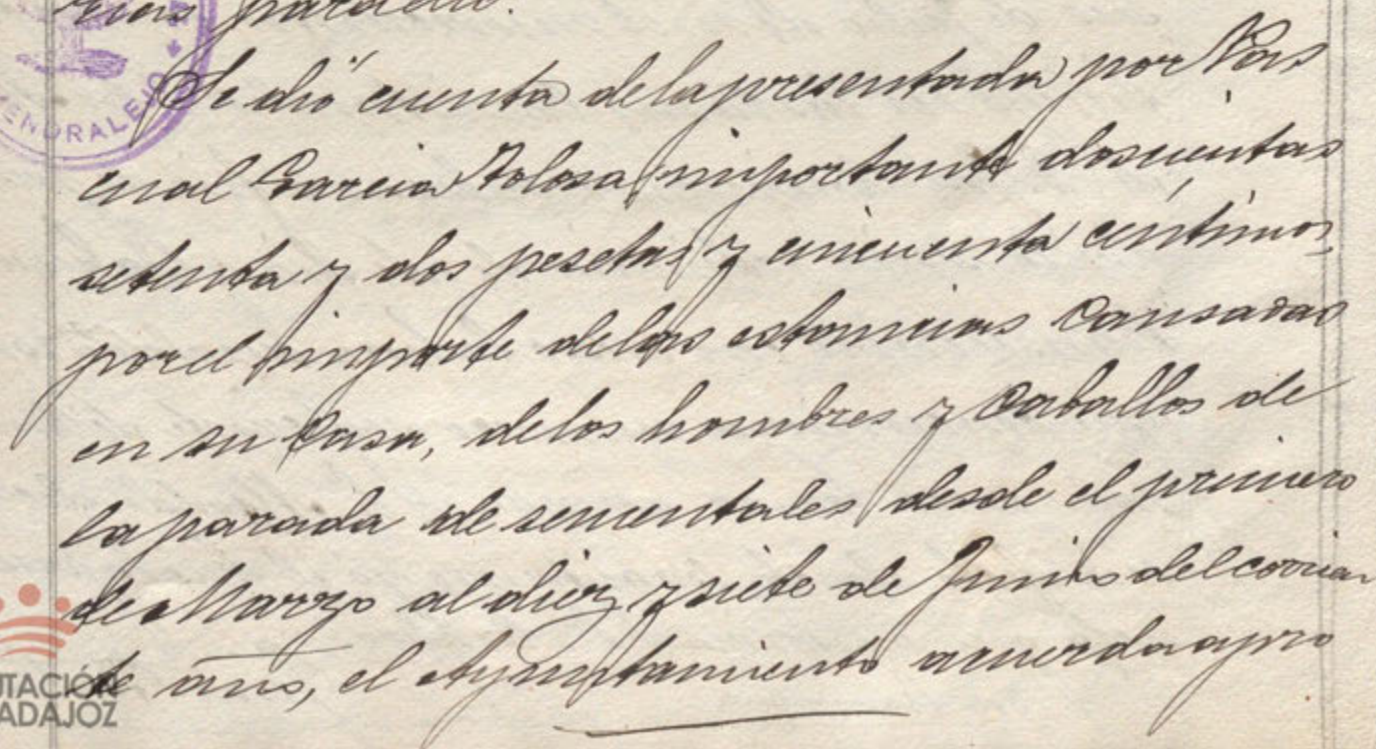 Se dió cuenta de la presentada por Pas
cual Garcia Tolosa importante doscientas
setenta y dos pesetas y cincuenta céntimos,
por el importe de las estancias causadas
en su casa, de los hombres y caballos de
la parada de sementales desde el primero
de Marzo al diez y siete de Junio del corrien
te año, el Ayuntamiento acuerda apro
ENDRALEJO
UTACIÓN
ADAJOZ